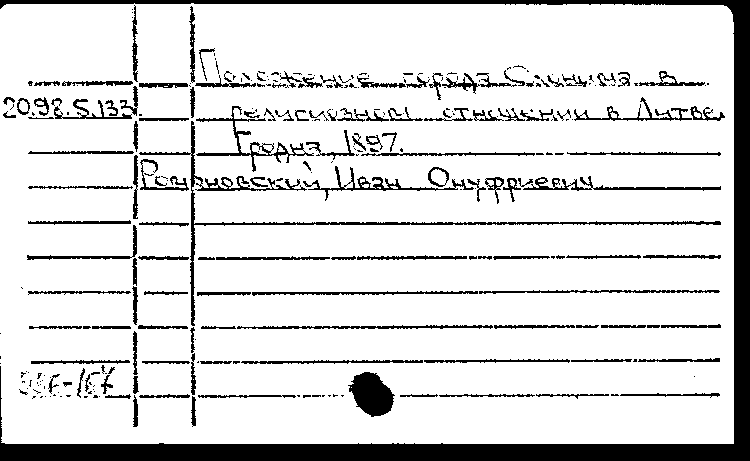 Положение города Слонима в
20.98.5.133. религиозном отношении в Литве.
Гродна, 1897.
Романовский, Иван Онуфриевич